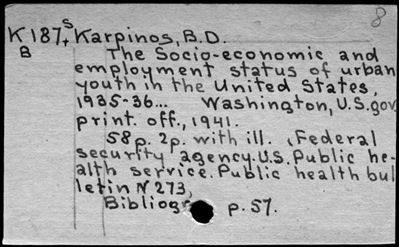 8
K187+s Karpinos, B.D.
B The Socio-economic and
employment status of urban
youth in the United States,
1935-36... Washington, U.S. gov.
print. off., 1941.
58 p. 2p. with ill. (Federal
security agency. U.S. Public he-
alth service. Public health bul
letin N 273,
Bibliogr p. 57.